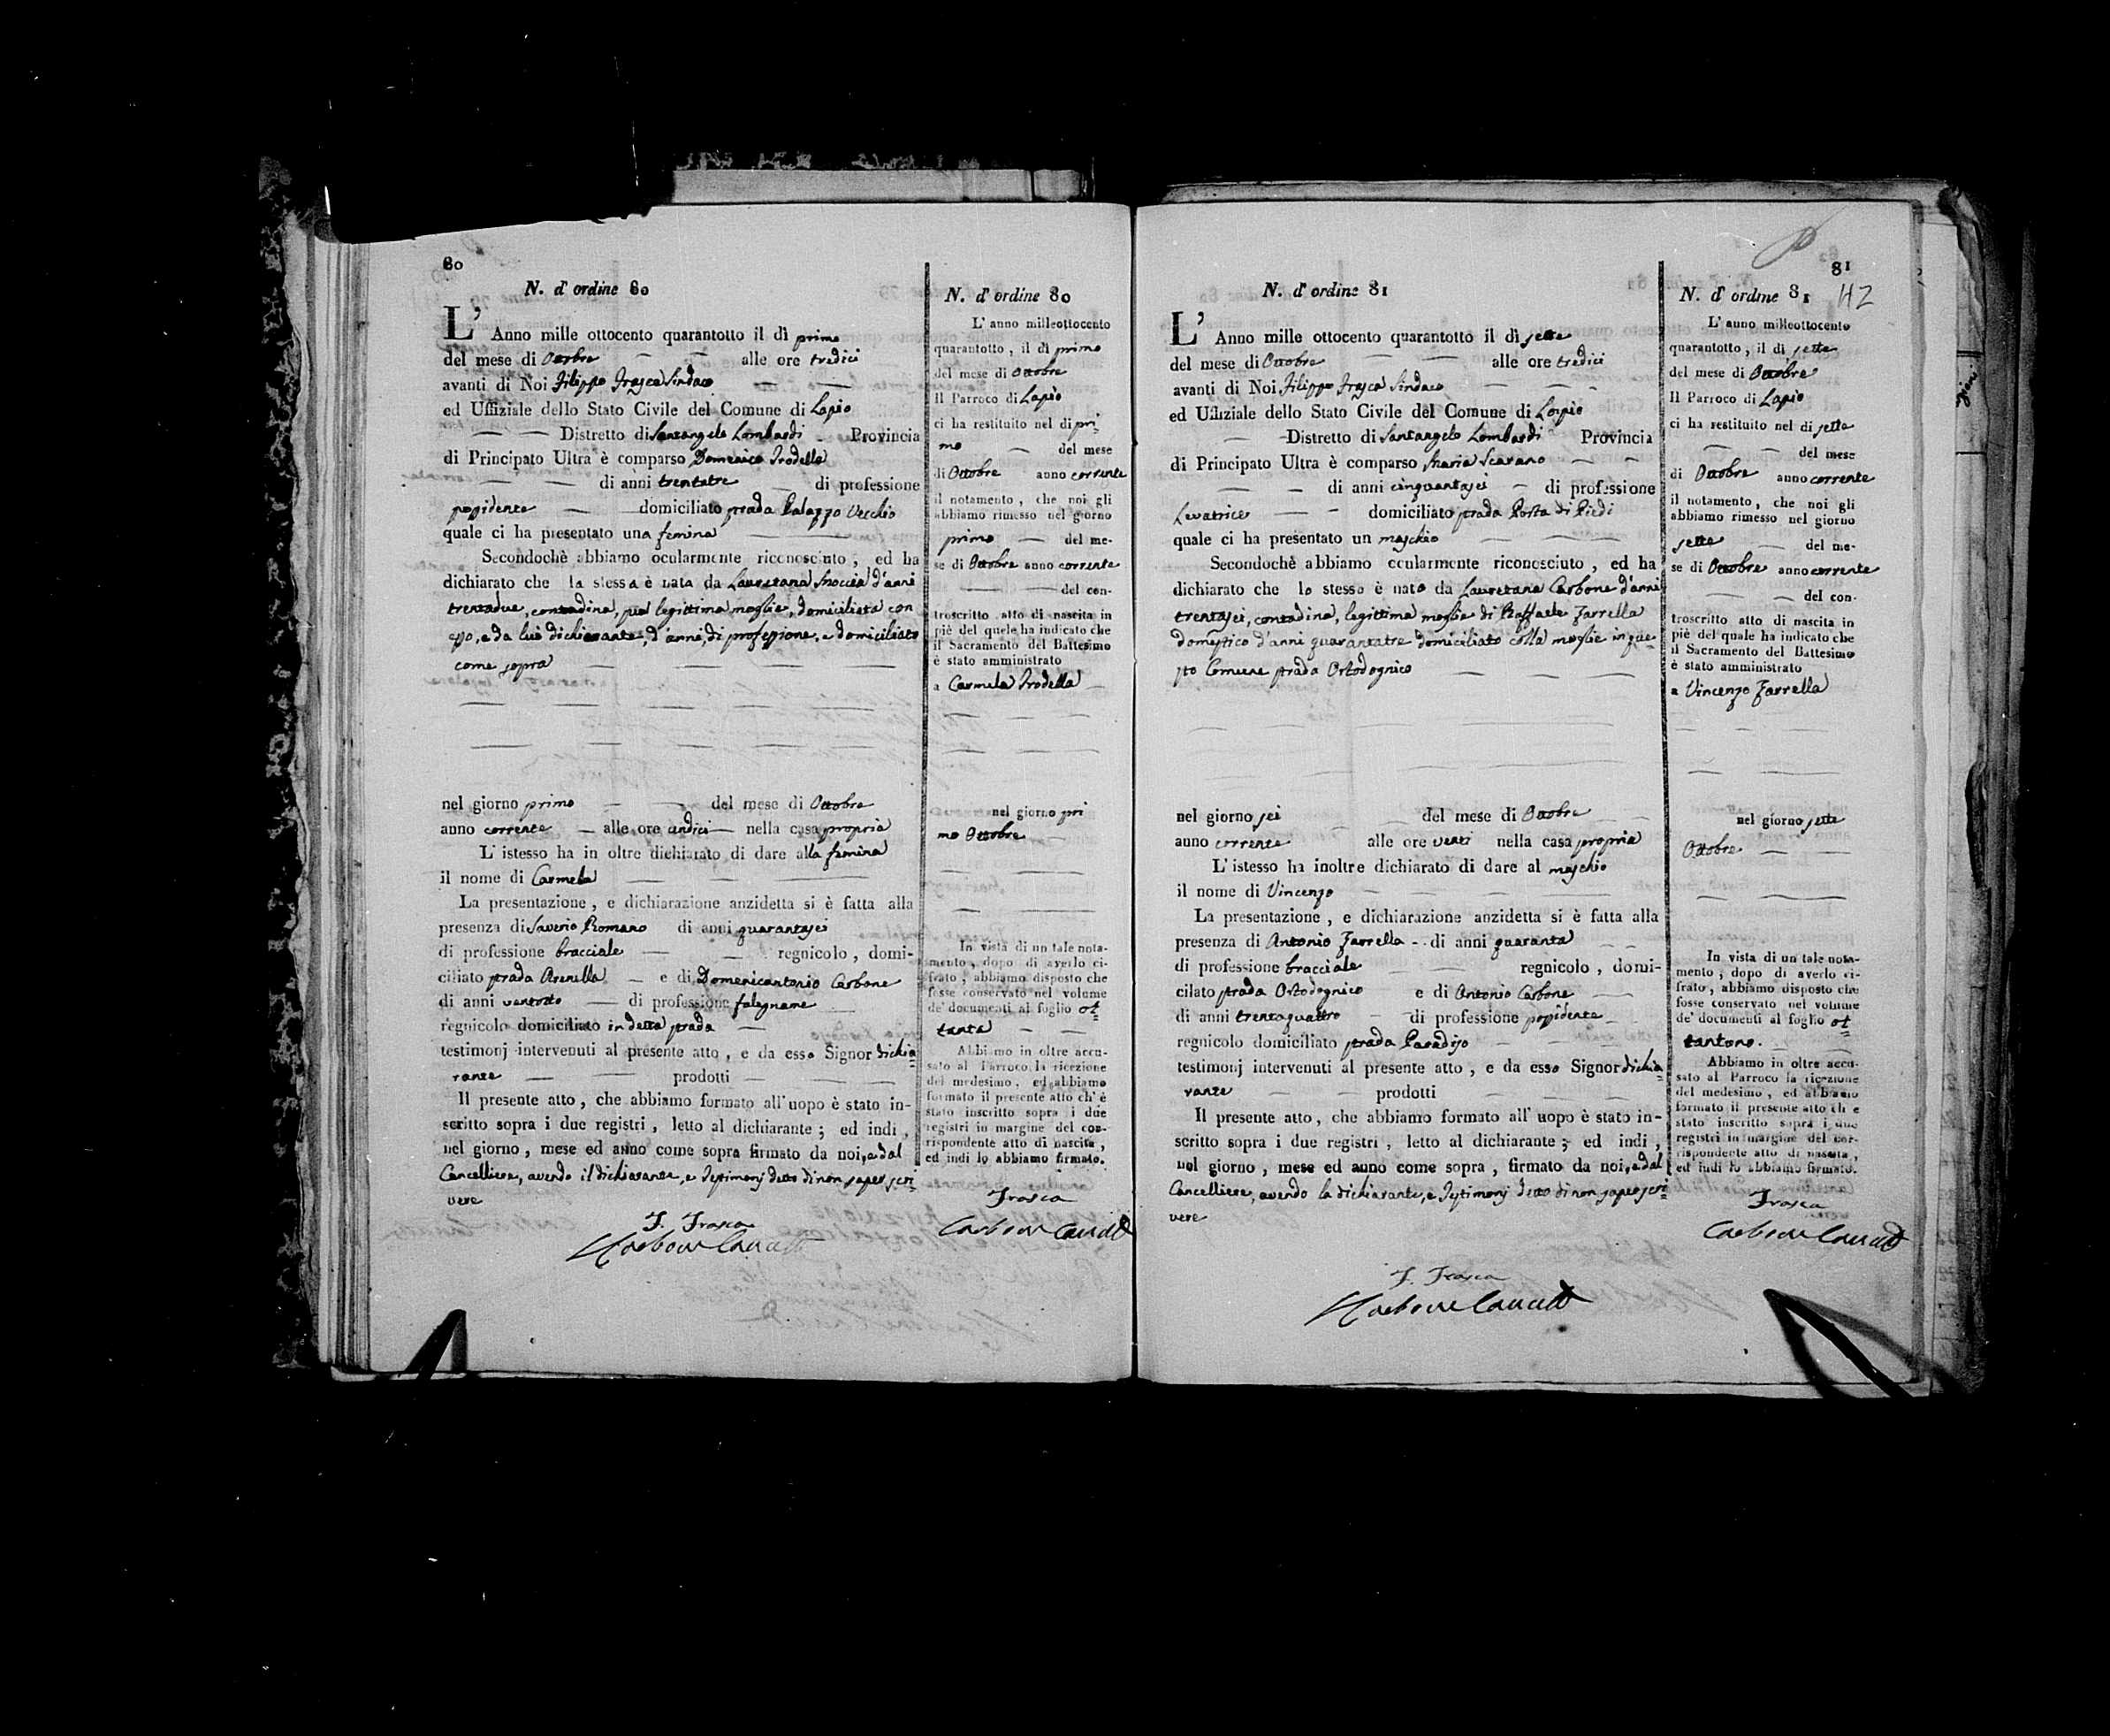 80
N. d' ordine 80
L' Anno mille ottocento quarantotto il dì primo
del mese di Ottobre alle ore tredici
avanti di Noi Filippo Frasca Sindaco
ed Uffiziale dello Stato Civile del Comune di Lapio
Distretto di Santangelo Lombardi Provincia
di Principato Ultra è comparso Domenico Frodella
di anni trentatre di professione
possidente domiciliato strada Palazzo Vecchio
quale ci ha presentato una femina
Secondochè abbiamo ocularmente riconosciuto, ed ha
dichiarato che la stessa è nata da Lauretana d'anni
trentadue, contadina, sua legittima moglie, domiciliata con
esso, e da lui dichiarante, d'anni, di professione, e domiciliato
come sopra
nel giorno primo del mese di Ottobre
anno corrente alle ore undici nella casa propria
L' istesso ha in oltre dichiarato di dare alla femina
il nome di Carmela
La presentazione, e dichiarazione anzidetta si è fatta alla
presenza di Saverio Romano di anni quarantasei
di professione bracciale regnicolo, domi-
ciliato strada Arenella e di Domenicantonio Carbone
di anni ventotto di professione falegname
regnicolo domiciliato in detta strada
testimonj intervenuti al presente atto, e da esso Signor dichia=
rante prodotti
Il presente atto, che abbiamo formato all' uopo è stato in-
scritto sopra i due registri, letto al dichiarante; ed indi,
nel giorno, mese ed anno come sopra firmato da noi, e dal
Cancelliere, avendo il dichiarante, e Testimonj detto di non saper scri=
vere
F. Frasca
N. d' ordine 80
L' anno milleottocento
quarantotto, il dì primo
del mese di Ottobre
Il Parroco di Lapio
ci ha restituito nel dì pri=
mo del mese
di Ottobre anno corrente
il notamento, che noi gli
abbiamo rimesso nel giorno
primo del me-
se di Ottobre anno corrente
del con-
troscritto atto di nascita in
piè del quele ha indicato che
il Sacramento del Battesimo
è stato amministrato
a Carmela Frodella
nel giorno pri
mo Ottobre
In vista di un tale nota-
mento, dopo di averlo ci-
frato, abbiamo disposto che
fosse conservato nel volume
de' documenti al foglio ot=
tanta
Abbiamo in oltre accu-
sato al Parroco la ricezione
del medesimo, ed abbiamo
formato il presente atto ch' è
stato inscritto sopra i due
registri in margine del cor-
rispondente atto di nascita,
ed indi lo abbiamo firmato.
Frasca
81
42
N. d' ordine 81
L' Anno mille ottocento quarantotto il dì sette
del mese di Ottobre alle ore tredici
avanti di Noi Filippo Frasca Sindaco
ed Uffiziale dello Stato Civile del Comune di Lapio
Distretto di Santangelo Lombardi Provincia
di Principato Ultra è comparso Maria Scarano
di anni cinquantasei di professione
Levatrice domiciliato strada Porta di Piedi
quale ci ha presentato un maschio
Secondochè abbiamo ocularmente riconosciuto, ed ha
dichiarato che lo stesso è nato da Lauretana Carbone d'anni
trentasei, contadina, legittima moglie di Raffaele Zarrella
domestico d'anni quarantatre domiciliato colla moglie in que=
sto Comune strada Ortodognico
nel giorno sei del mese di Ottobre
anno corrente alle ore venti nella casa propria
L' istesso ha inoltre dichiarato di dare al maschio
il nome di Vincenzo
La presentazione, e dichiarazione anzidetta si è fatta alla
presenza di Antonio Zarrella di anni quaranta
di professione bracciale regnicolo, domi-
cilato strada Ortodognico e di Antonio Carbone
di anni trentaquattro di professione possidente
regnicolo domiciliato strada Paradiso
testimonj intervenuti al presente atto, e da esso Signor dichia=
rante prodotti
Il presente atto, che abbiamo formato all' uopo è stato in-
scritto sopra i due registri, letto al dichiarante; ed indi,
nel giorno, mese ed anno come sopra, firmato da noi, e dal
Cancelliere, avendo la dichiarante, e Testimonj detto di non saper scri=
vere
F. Frasca
N. d' ordine 81
L' anno milleottocento
quarantotto, il dì sette
del mese di Ottobre
Il Parroco di Lapio
ci ha restituito nel dì sette
del mese
di Ottobre anno corrente
il notamento, che noi gli
abbiamo rimesso nel giorno
sette del me-
se di Ottobre anno corrente
del con-
troscritto atto di nascita in
piè del quale ha indicato che
il Sacramento del Battesimo
è stato amministrato
a Vincenzo Zarrella
nel giorno sette
Ottobre
In vista di un tale nota-
mento, dopo di averlo ci-
frato, abbiamo disposto che
fosse conservato nel volume
de' documenti al foglio ot=
tantuno.
Abbiamo in oltre accu-
sato al Parroco la ricezione
del medesimo, ed abbiamo
formato il presente atto ch' è
stato inscritto sopra i due
registri in margine del cor-
rispondente atto di nascita,
ed indi lo abbiamo firmato.
Frasca